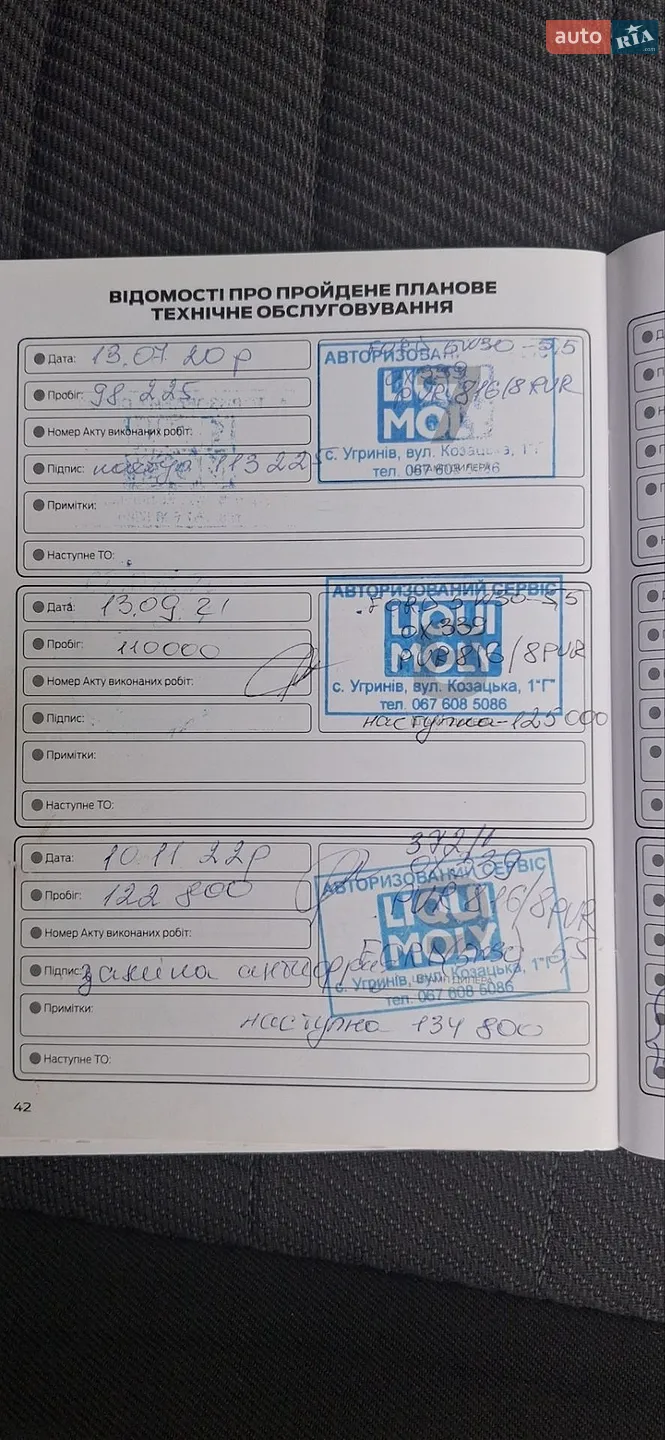 auto RIA .com
ВІДОМОСТІ ПРО ПРОЙДЕНЕ ПЛАНОВЕ
ТЕХНІЧНЕ ОБСЛУГОВУВАННЯ
Дата: 13.07 20р
Пробіг: 98 225
Номер Акту виконаних робіт:
Підпис: 113 225
Примітки:
Наступне ТО:
5W30 - 5,5
АВТОРИЗОВАН
OX339
PUR 816/8 PUR
LIQUI
MOLY
с. Угринів, вул. Козацька, 1"Г"
тел. 067 608
Дата: 13.09 21
Пробіг: 110000
Номер Акту виконаних робіт:
Підпис:
Примітки:
Наступне ТО:
АВТОРИЗОВАНИЙ СЕРВІС
FORD 5W30-5,5
LIQUI
OX339
MOLY
PUR 816/8PUR
с. Угринів, вул. Козацька, 1"Г"
тел. 067 608 5086
наступна-125000
Дата: 10.11 22р
Пробіг: 122 800
Номер Акту виконаних робіт:
Підпис: заміна антифриз
Примітки: наступна 134 800
Наступне ТО:
372/1
OX339
АВТОРИЗОВАНИЙ СЕРВІС
LIQUI
PUR 816/8PUR
MOLY
FORD 5W30 5,5
с. Угринів, вул. Козацька, 1"Г"
тел. 067 608 5086
42